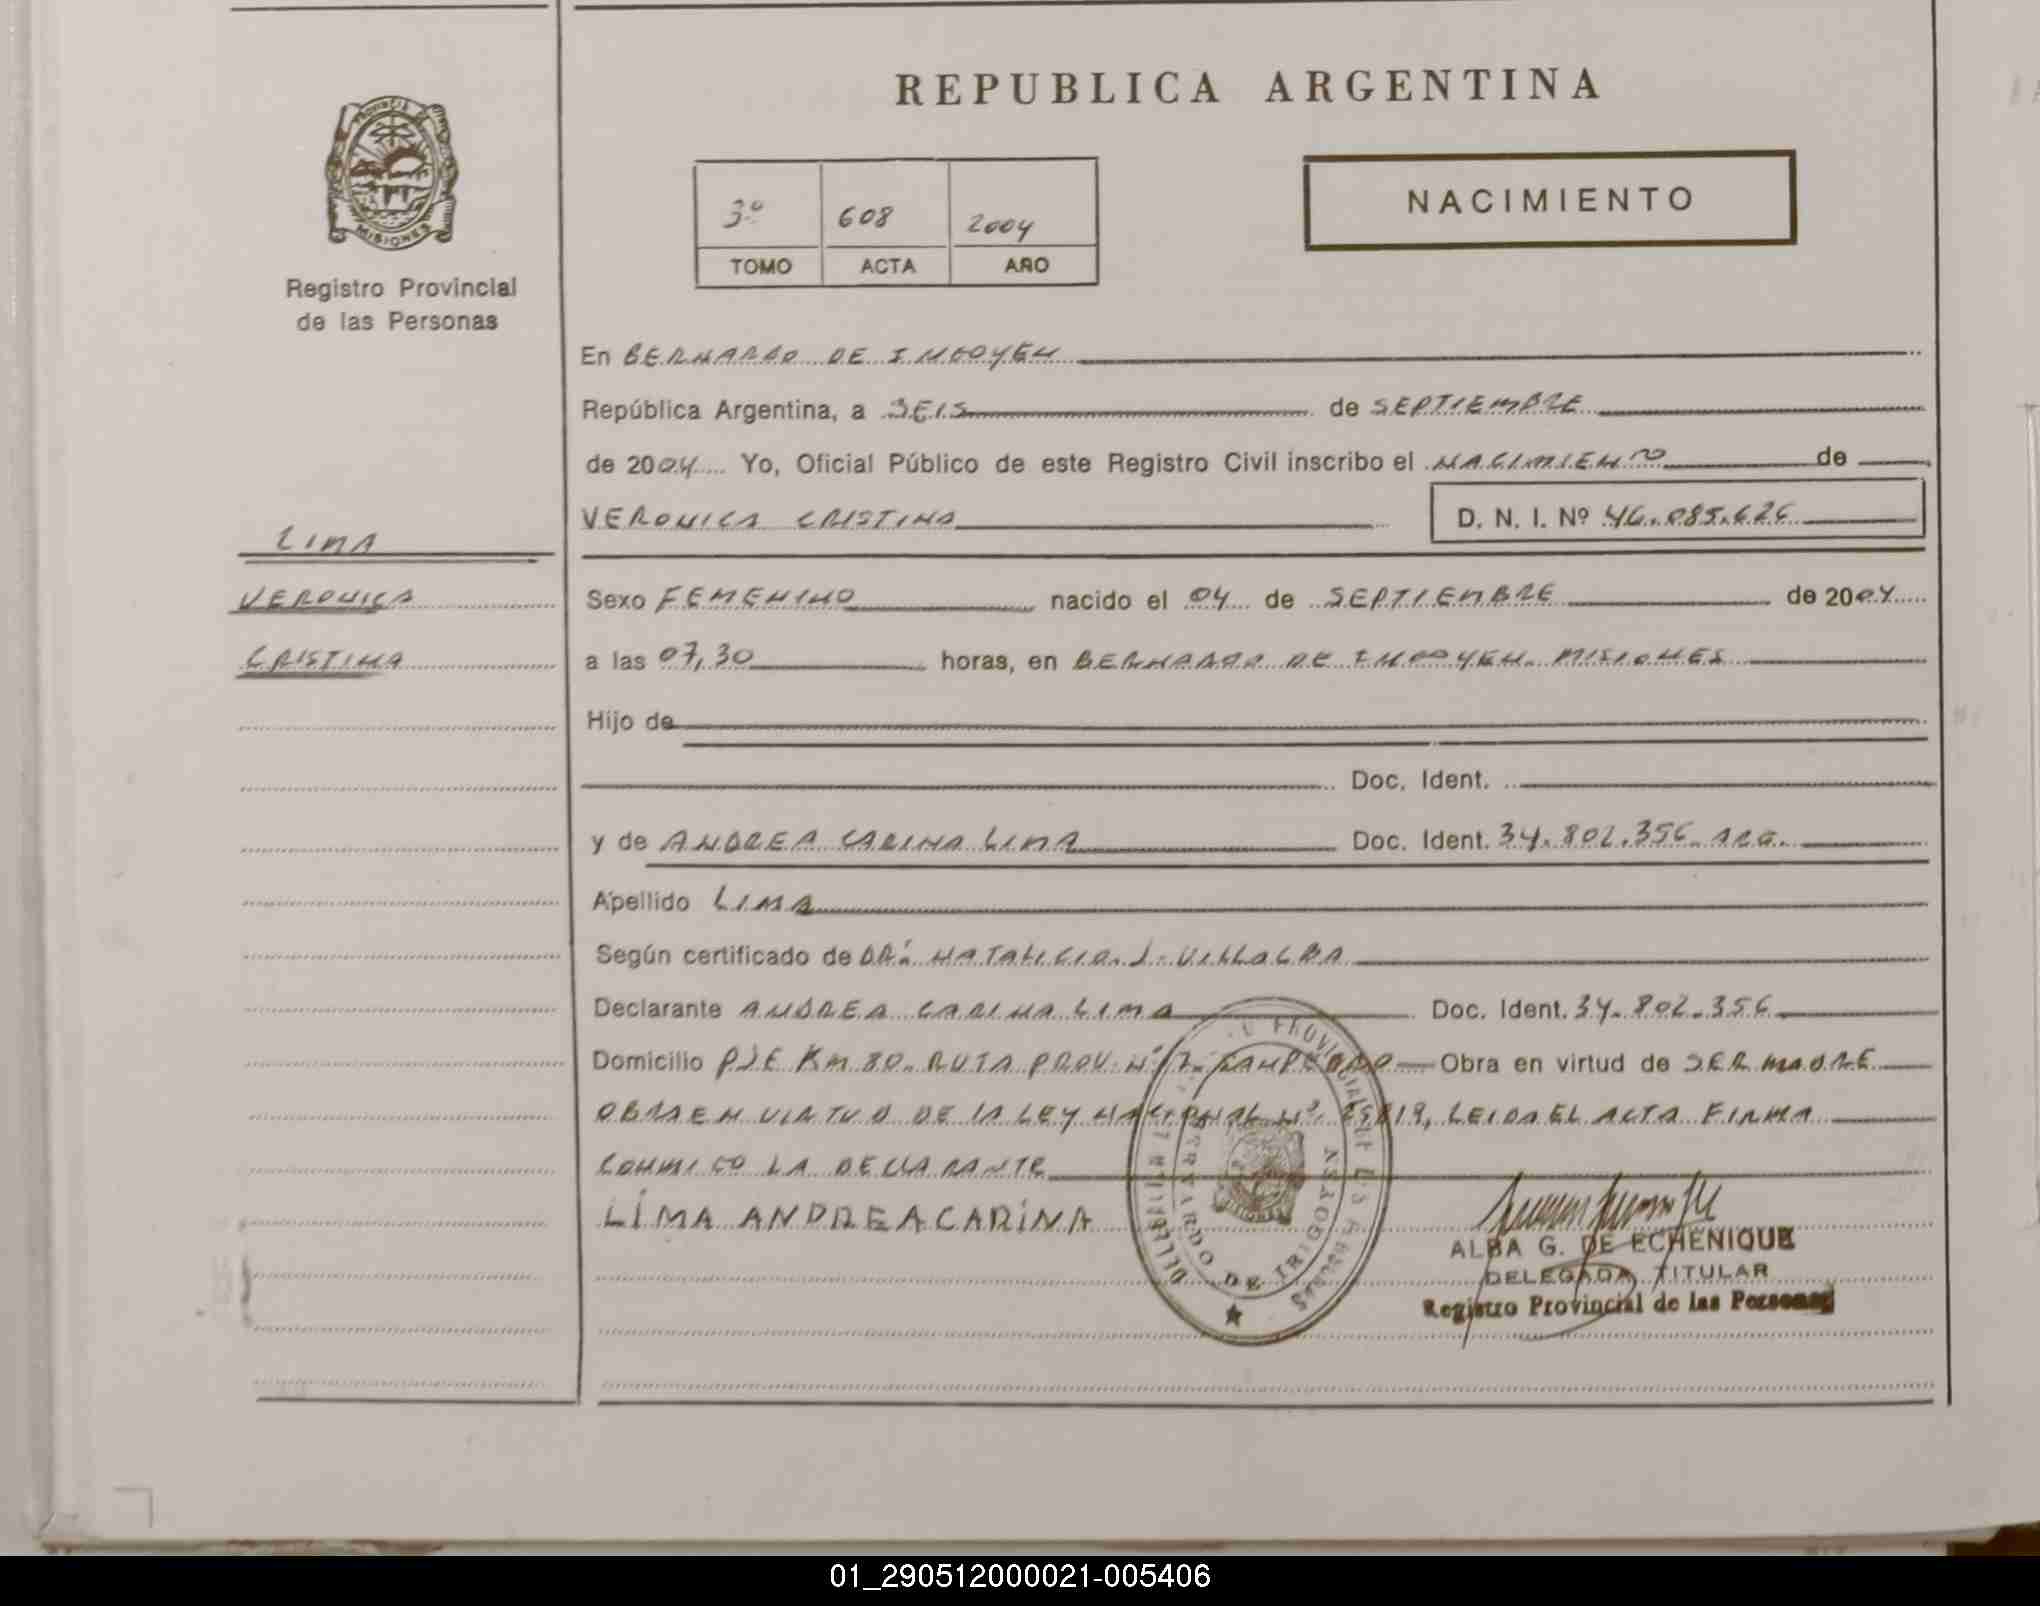 REPUBLICA ARGENTINA
PROVINCIA DE
MISIONES
Registro Provincial
de las Personas
3º 608 2004
TOMO ACTA AÑO
NACIMIENTO
En BERNARDO DE IRIGOYEN
República Argentina, a SEIS de SEPTIEMBRE
de 2004 Yo, Oficial Público de este Registro Civil inscribo el NACIMIENTO de
VERONICA CRISTINA D. N. I. Nº 46.085.626
LIMA
VERONICA
CRISTINA
Sexo FEMENINO nacido el 04 de SEPTIEMBRE de 2004
a las 07,30 horas, en BERNARDO DE IRIGOYEN. MISIONES
Hijo de
Doc. Ident.
y de ANDREA CARINA LIMA Doc. Ident. 34.802.356. ARG.
Apellido LIMA
Según certificado de DR. NATALICIO J. VILLALBA
Declarante ANDREA CARINA LIMA Doc. Ident. 34.802.356
Domicilio PJE KM 80. RUTA PROV. Nº 17. Obra en virtud de SER MADRE
OBRA EN VIRTUD DE LA LEY NACIONAL Nº 25819, LEIDA EL ACTA FIRMA
CONMIGO LA DECLARANTE
LIMA ANDREA CARINA
BERNARDO DE IRIGOYEN
ALBA G. DE ECHENIQUE
DELEGADA TITULAR
Registro Provincial de las Personas
01_290512000021-005406